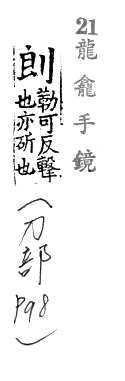 21龍龕手鏡
剆勒可反擊
也亦斫也
(刀部 p98)